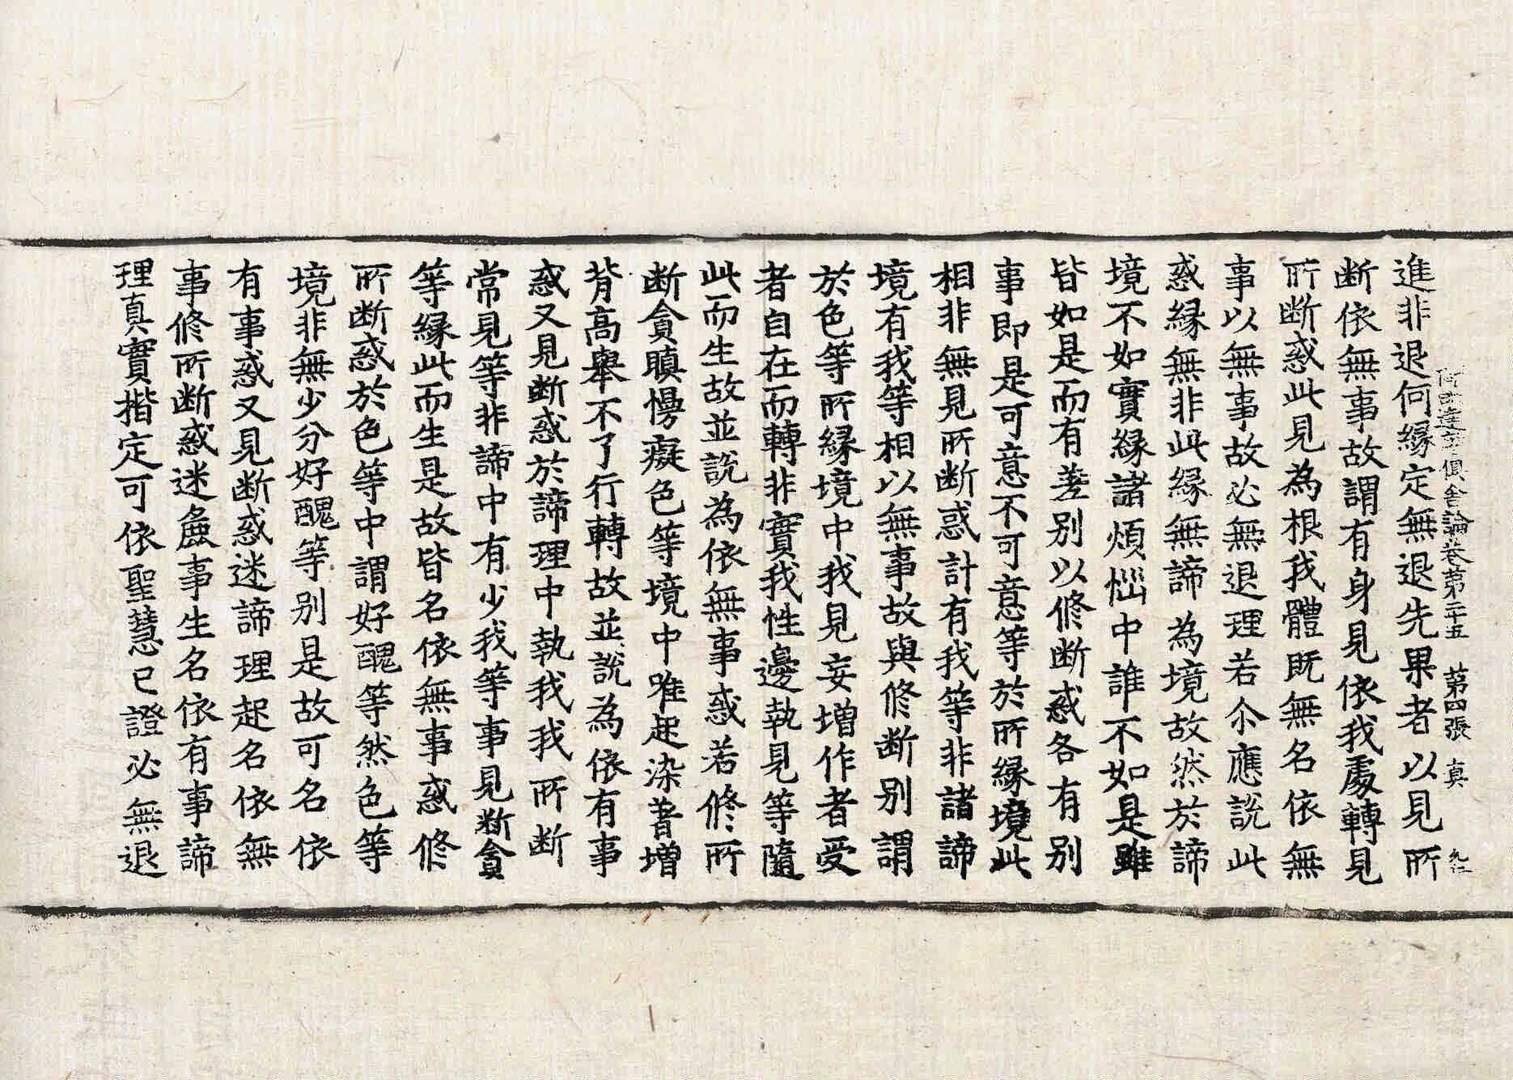 阿毗達磨俱舍論卷第二十五 第四張 真
進非退何緣定無退先果者以見所
断依無事故謂有身見依我處轉見
所断惑此見為根我體既無名依無
事以無事故必無退理若尒應說此
惑緣無非此緣無諦為境故然於諦
境不如實緣諸煩惱中誰不如是雖
皆如是而有差別以修断惑各有別
事即是可意不可意等於所緣境此
相非無見所断惑計有我等非諸諦
境有我等相以無事故與修断別謂
於色等所緣境中我見妄增作者受
者自在而轉非實我性邊執見等隨
此而生故並說為依無事惑若修所
断貪瞋慢癡色等境中唯起染著增
背高舉不了行轉故並說為依有事
惑又見断惑於諦理中執我我所断
常見等非諦中有少我等事見断貪
等緣此而生是故皆名依無事惑修
所断惑於色等中謂好醜等然色等
境非無少分好醜等別是故可名依
有事惑又見断惑迷諦理起名依無
事修所断惑迷麁事生名依有事諦
理真實揩定可依聖慧已證必無退